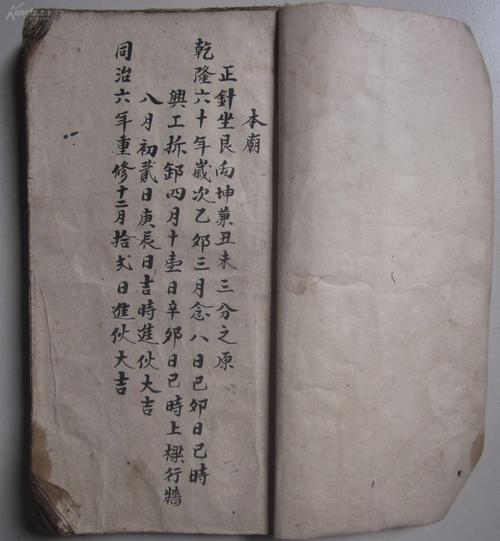 本廟
正針坐艮向坤兼丑未三分之原
乾隆六十年歲次乙卯三月念八日己卯日巳時
興工拆卸四月十壹日辛卯日巳時上樑行牆
八月初貳日庚辰日吉時進伙大吉
同治六年重修十二月拾弍日進伙大吉